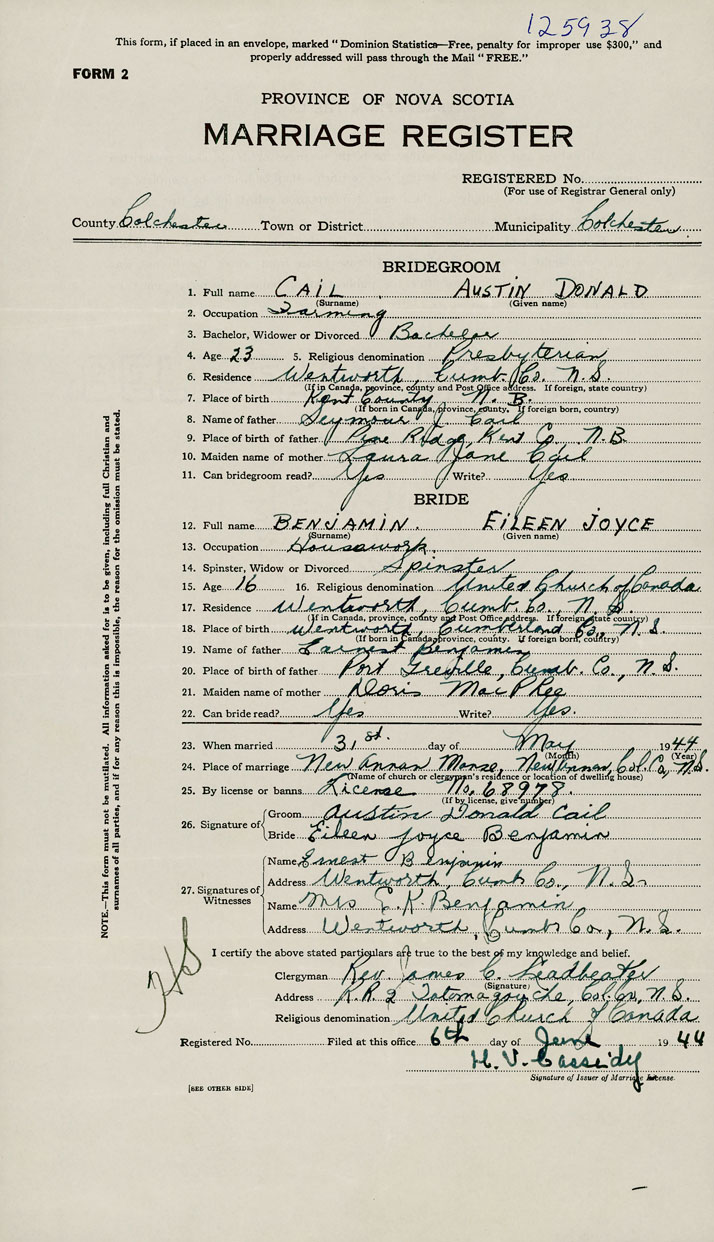 125938
This form, if placed in an envelope, marked "Dominion Statistics—Free, penalty for improper use $300," and
properly addressed will pass through the Mail "FREE."
FORM 2
PROVINCE OF NOVA SCOTIA
MARRIAGE REGISTER
REGISTERED No.
(For use of Registrar General only)
County Colchester Town or District Municipality Colchester
BRIDEGROOM
1. Full name CAIL AUSTIN DONALD
(Surname) (Given name)
2. Occupation Farming
3. Bachelor, Widower or Divorced Bachelor
4. Age 23 5. Religious denomination Presbyterian
6. Residence Wentworth, Cumb. Co. N.S.
(If in Canada, province, county and Post Office address. If foreign, state country)
7. Place of birth Kent County N. B.
(If born in Canada, province, county. If foreign born, country)
8. Name of father Seymour J. Cail
9. Place of birth of father Pine Ridge, Kent Co., N.B.
10. Maiden name of mother Laura Jane Cail
11. Can bridegroom read? Yes Write? Yes
BRIDE
12. Full name BENJAMIN. EILEEN JOYCE
(Surname) (Given name)
13. Occupation Housework.
14. Spinster, Widow or Divorced Spinster
15. Age 16 16. Religious denomination United Church of Canada
17. Residence Wentworth, Cumb. Co., N.S.
(If in Canada, province, county and Post Office address. If foreign, state country)
18. Place of birth Wentworth, Cumberland Co., N.S.
(If born in Canada, province, county. If foreign born, country)
19. Name of father Earnest Benjamin
20. Place of birth of father Port Greville, Cumb. Co., N.S.
21. Maiden name of mother Doris MacPhee
22. Can bride read? Yes Write? Yes.
23. When married 31st. day of May 1944
(Month) (Year)
24. Place of marriage New Annan Manse, New Annan, Col. Co., N.S.
(Name of church or clergyman's residence or location of dwelling house)
25. By license or banns. License No. 68978.
(If by license, give number)
26. Signature of Groom Austin Donald Cail
Bride Eileen Joyce Benjamin
27. Signatures of Witnesses Name Ernest Benjamin
Address Wentworth, Cumb Co., N.S.
Name Mrs E. K. Benjamin
Address Wentworth, Cumb Co., N.S.
I certify the above stated particulars are true to the best of my knowledge and belief.
Clergyman Rev. James C. Leadbeater
(Signature)
Address R.R. 2 Tatamagouche, Col. Co., N.S.
Religious denomination United Church of Canada
Registered No. Filed at this office 6th day of June 1944
H. V. Cassidy
Signature of Issuer of Marriage License.
[SEE OTHER SIDE]
NOTE.—This form must not be mutilated. All information asked for is to be given, including full Christian and
surnames of all parties, and if for any reason this is impossible, the reason for the omission must be stated.